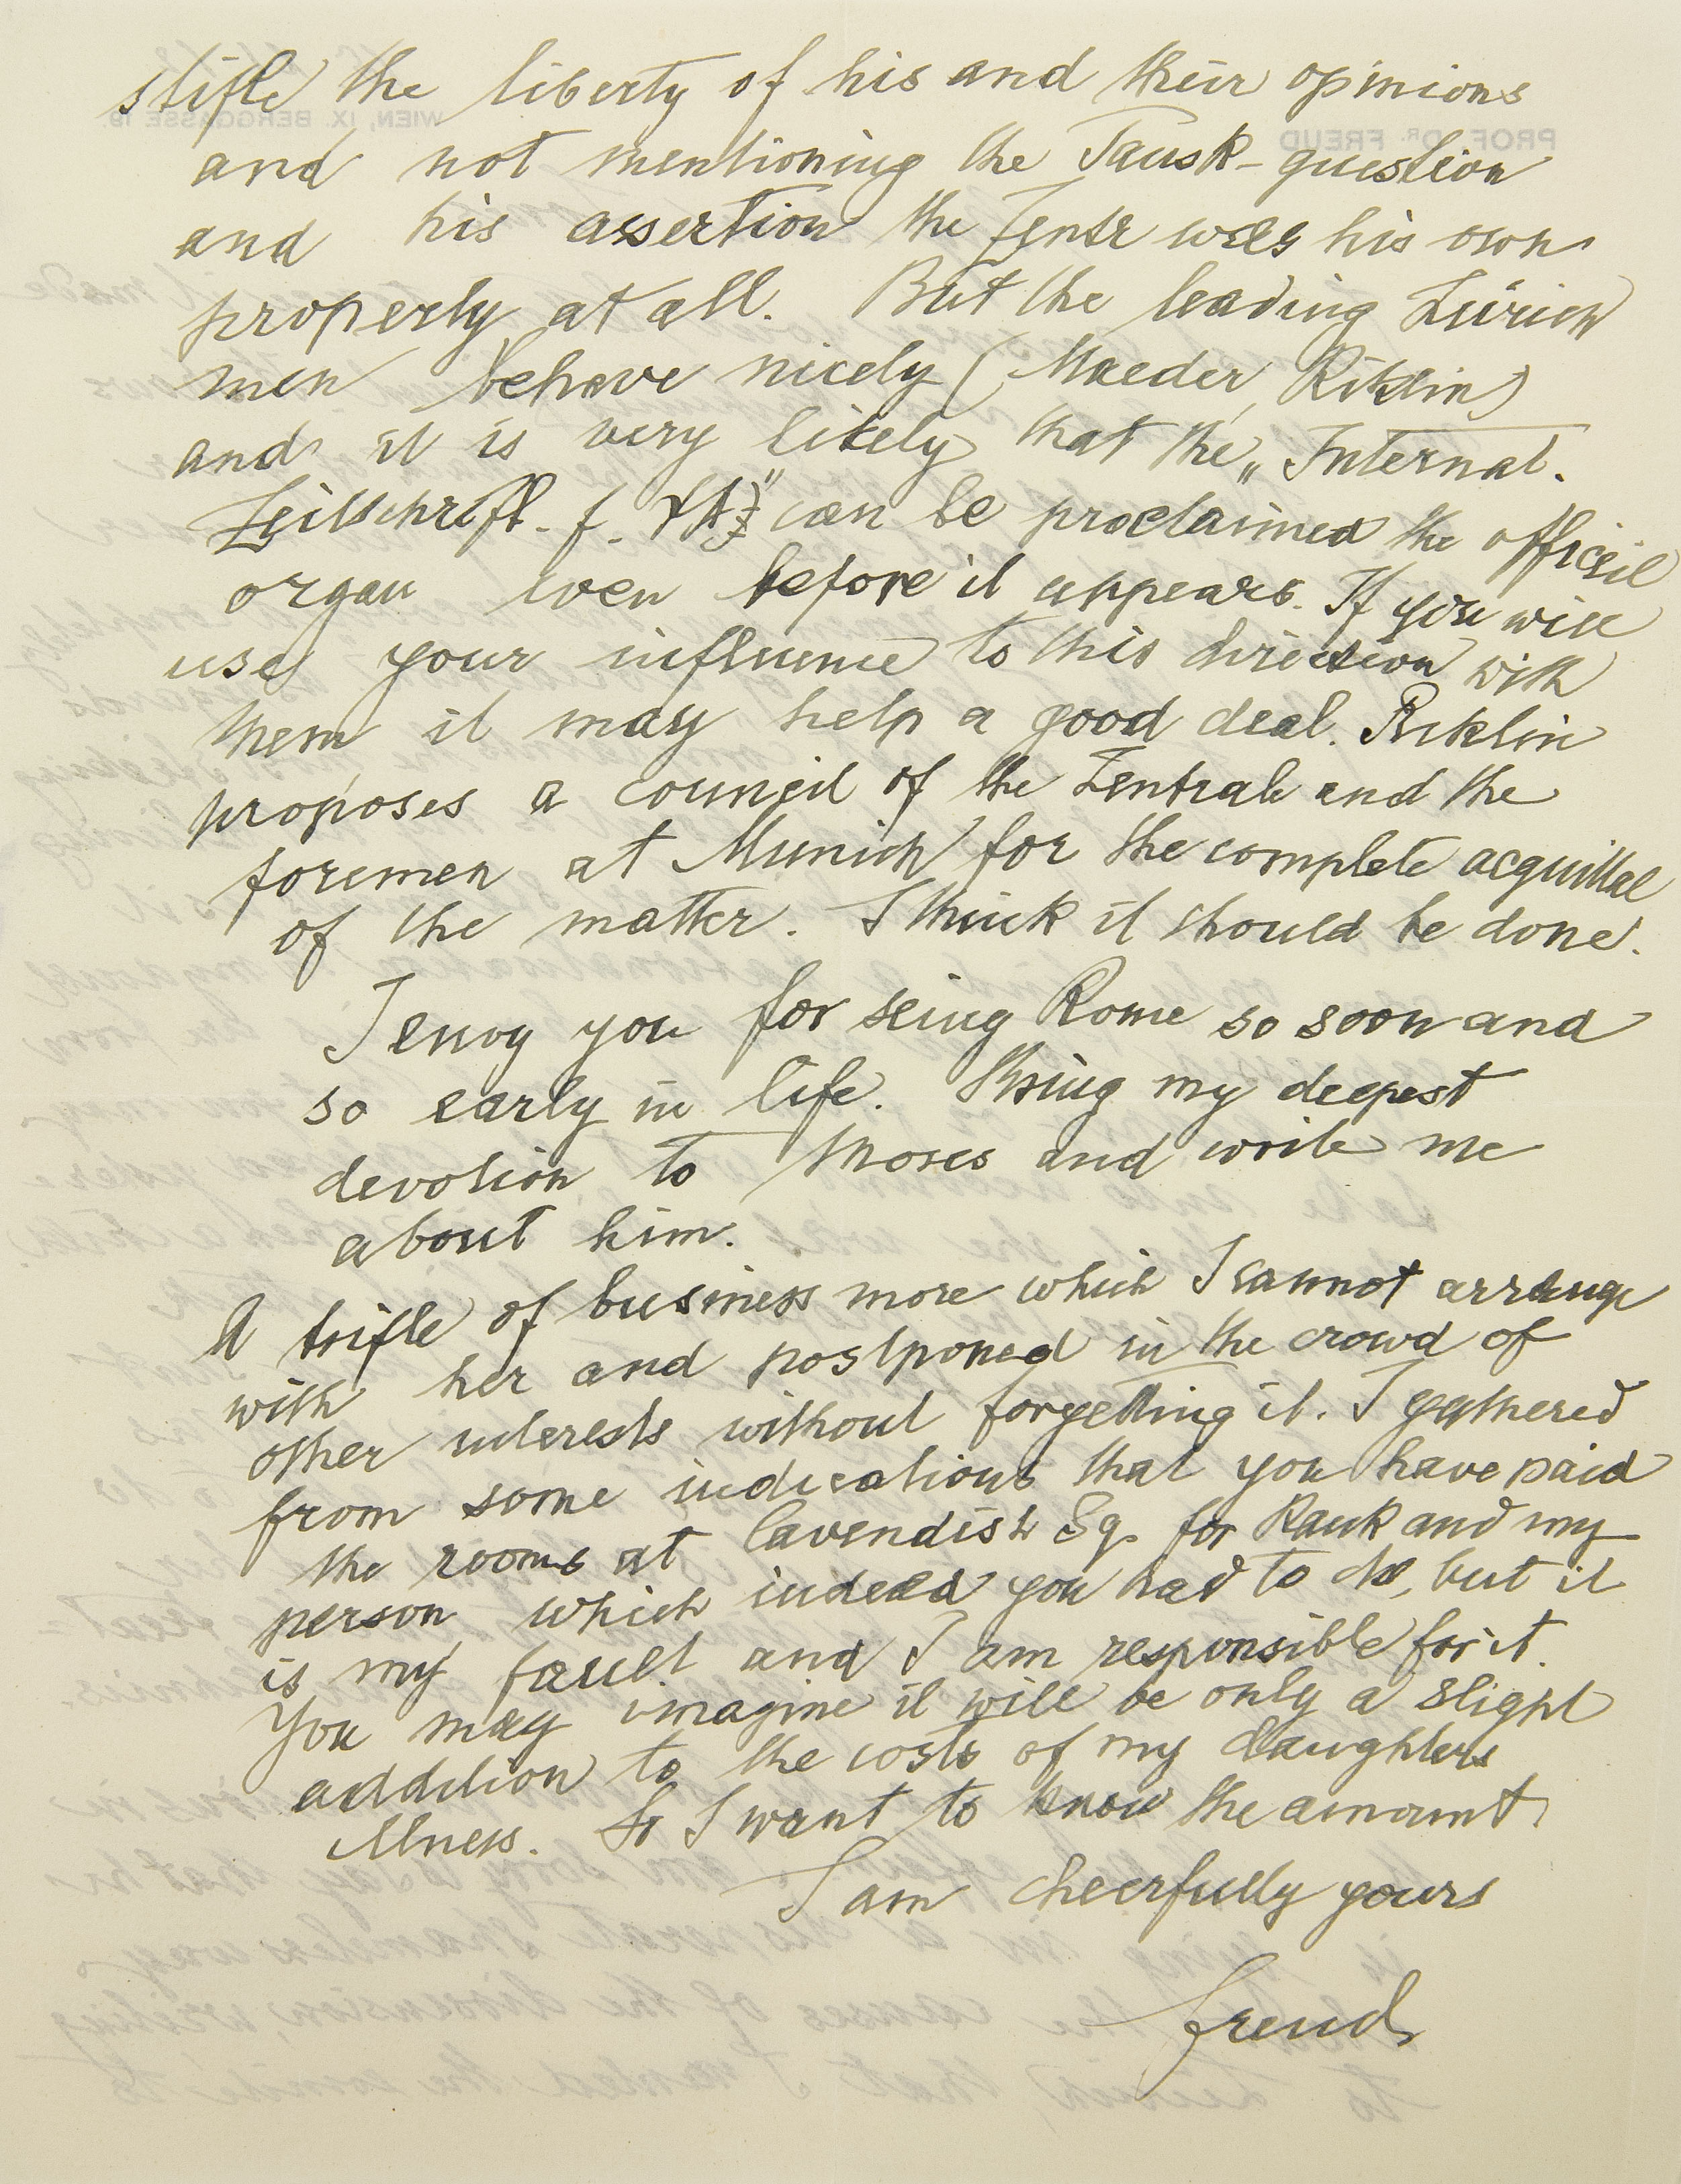 stifle the liberty of his and their opinions
and not mentioning the Tausk-question
and his assertion the Zentr was his own
property at all. But the leading Zürich
men behave nicely (Maeder, Riklin)
and it is very likely that the „Internat.
Zeitschrift. f. ΨA" can be proclaimed the official
organ even before it appears. If you will
use your influence to this direction with
them it may help a good deal. Riklin
proposes a council of the Zentrale and the
foremen at Munich for the complete acquittal
of the matter. I think it should be done.
I envy you for seing Rome so soon and
so early in life. Bring my deepest
devotion to Moses and write me
about him.
A trifle of business more which I cannot arrange
with her and postponed in the crowd of
other interests without forgetting it. I gathered
from some indications that you have paid
the rooms at Cavendish Sq. for Rank and my
person which indeed you had to do, but it
is my fault and I am responsible for it.
You may imagine it will be only a slight
addition to the costs of my daughters
illness. So I want to know the amount.
I am cheerfully yours
Freud
PROF. DR. FREUD
WIEN, IX. BERGGASSE 19.